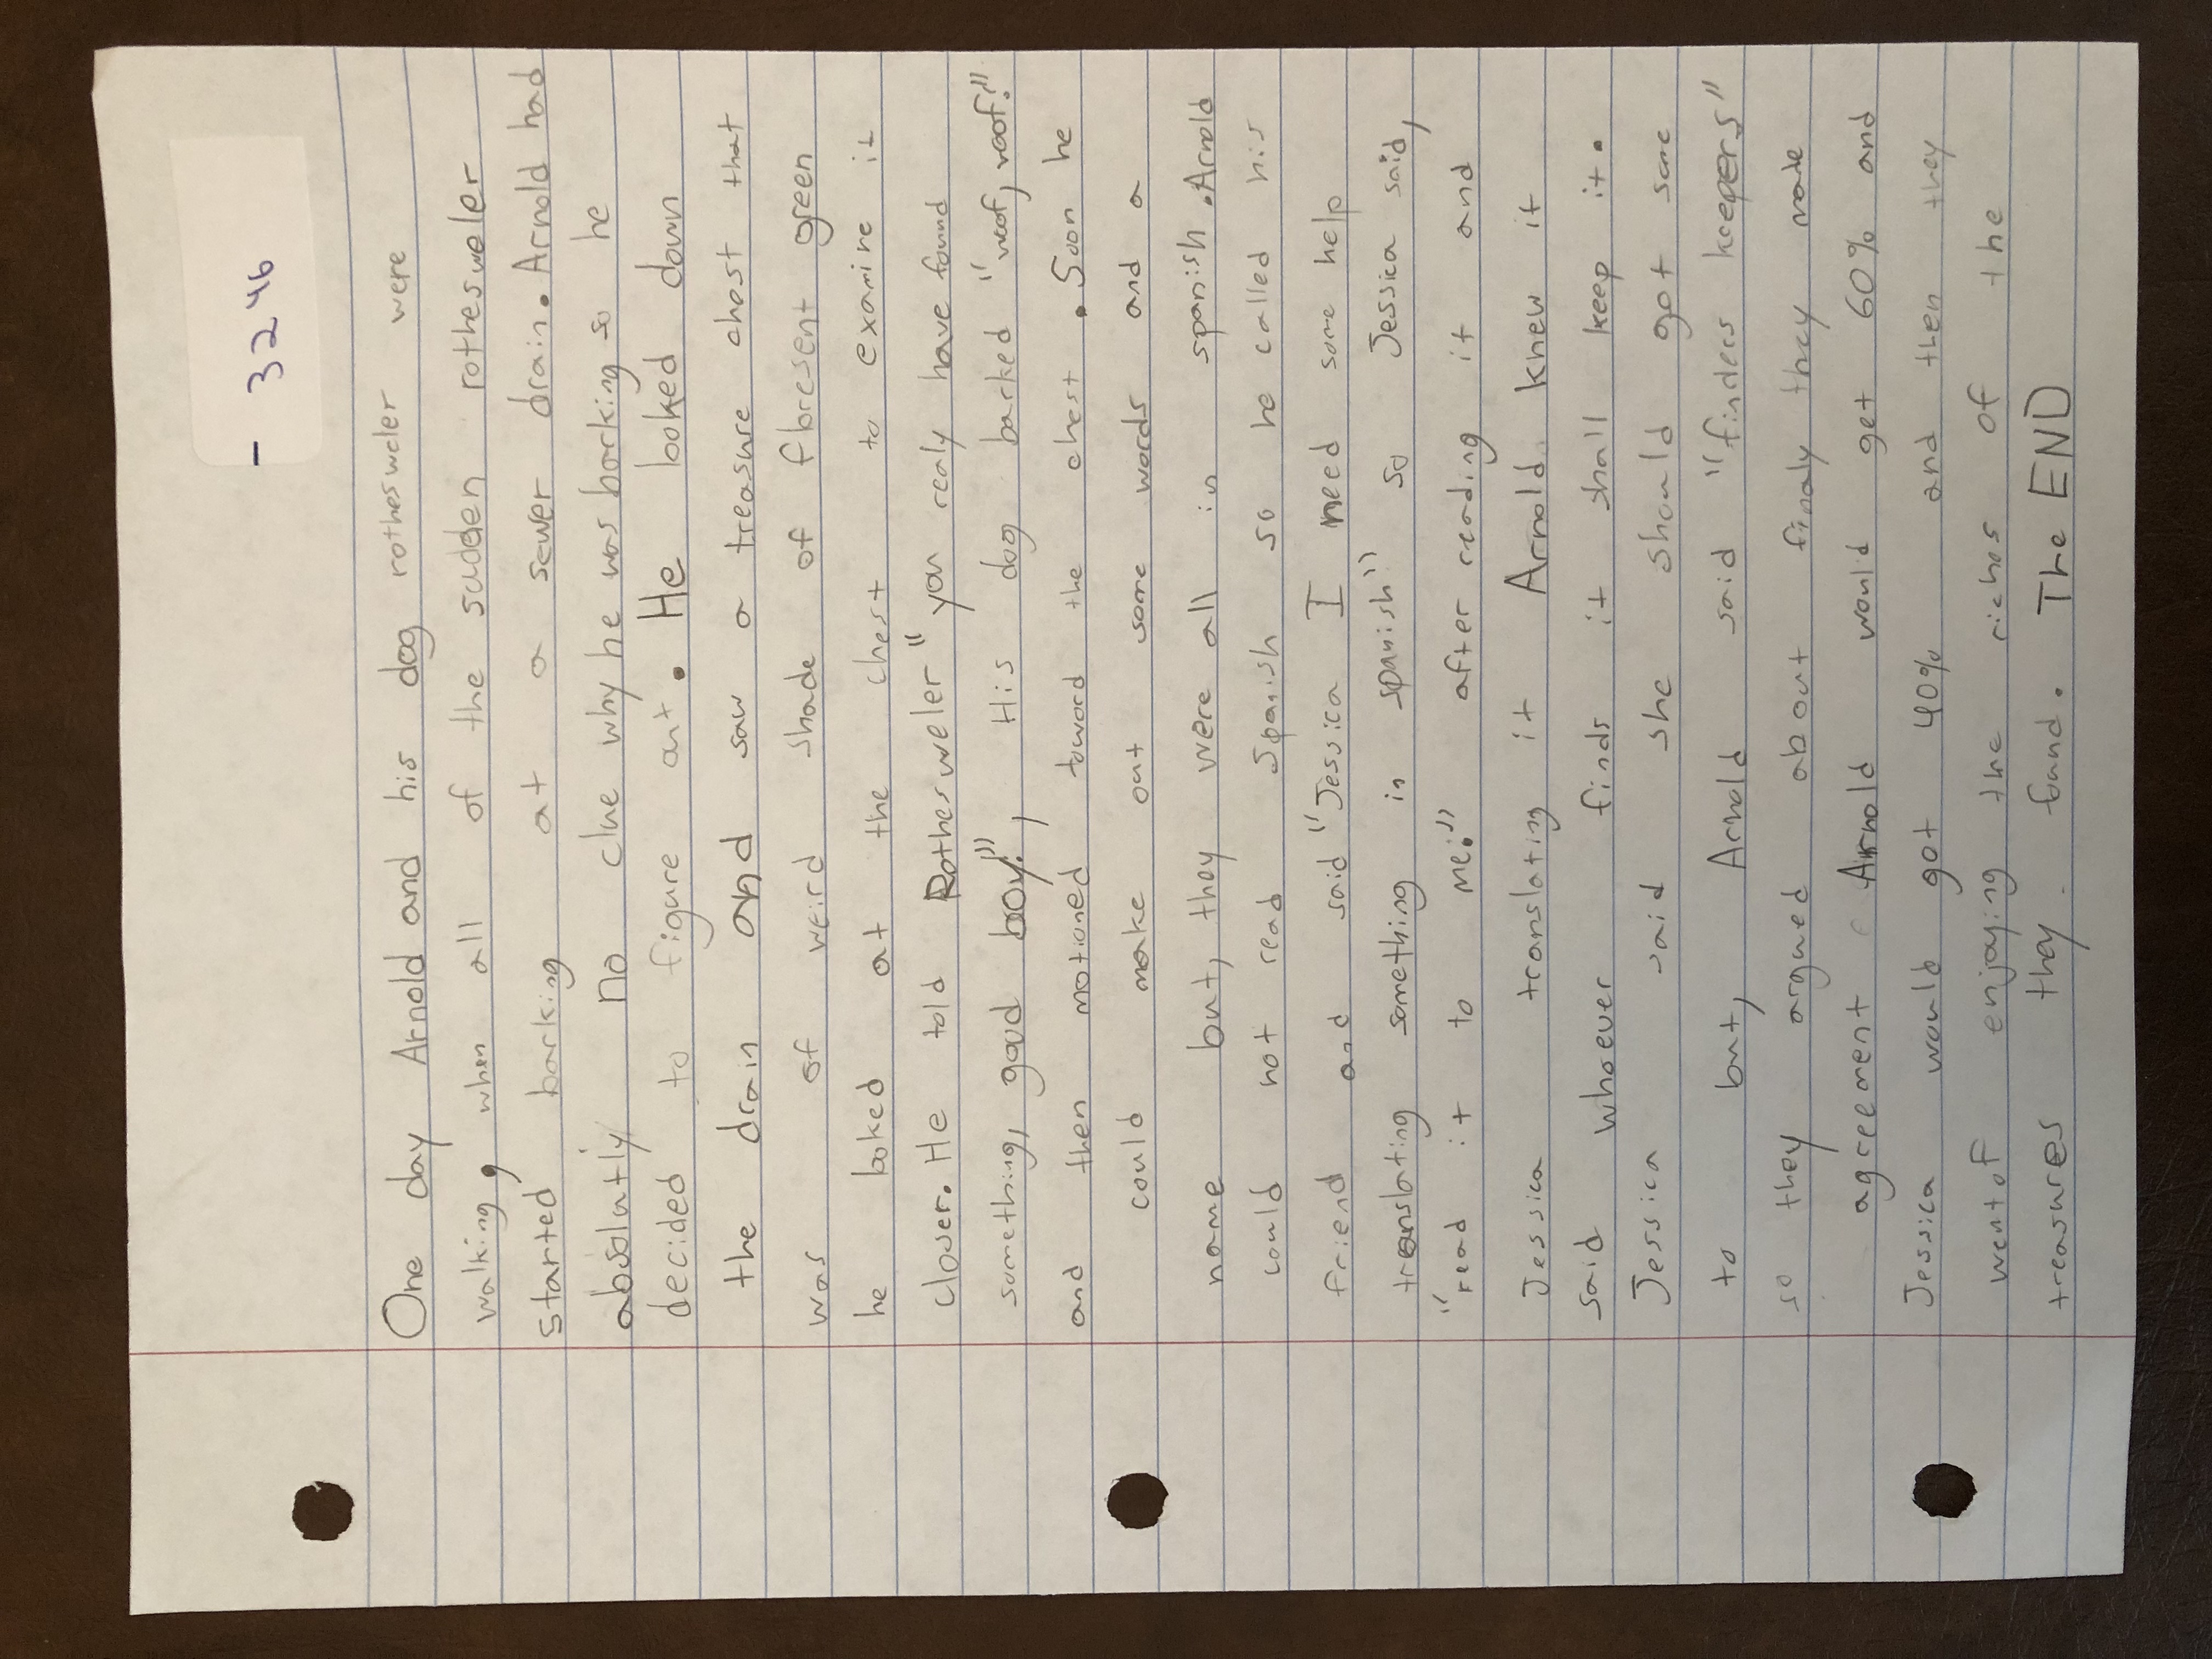 - 3246
One day Arnold and his dog rothesweler were
walking, when all of the sudden rothesweler
started barking at a sewer drain. Arnold had
absolutly no clue why he was barking so he
decided to figure out. He looked down
the drain and saw a treasure chest that
was of weird shade of floresent green
he looked at the chest to examine it
closer. He told Rothesweler "you realy have found
something, good boy!", His dog barked "woof, woof!"
and then motioned toward the chest. Soon he
could make out some words and a
name but, they were all in spanish. Arnold
could not read Spanish so he called his
friend and said "Jessica I need some help
translating something in spanish" so Jessica said,
"read it to me." after reading it and
Jessica translating it Arnold knew it
said whoever finds it shall keep it.
Jessica said she should get some
to but, Arnold said "finders keepers"
so they argued about finaly they made
agreement Arnold would get 60% and
Jessica would get 40% and then they
went of enjoying the riches of the
treasures they found. The END